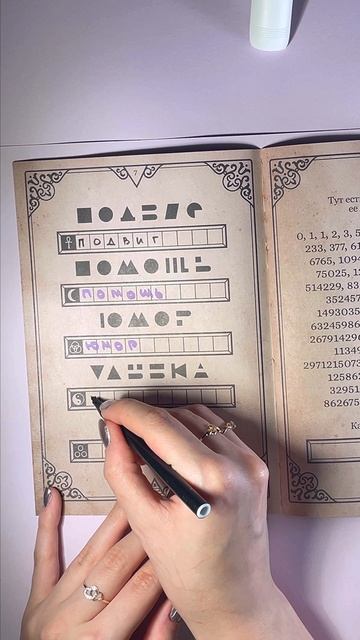 7
ПОДВИГ
ПОДВИГ
ПОМОЩЬ
ПОМОЩЬ
ЮМОР
ЮМОР
Тут ест
ее
0, 1, 1, 2, 3, 5
233, 377, 61
6765, 1094
75025, 1
514229, 83
352457
1493035
6324598
267914296
11349
2971215073
12586
32951
862675
Ка